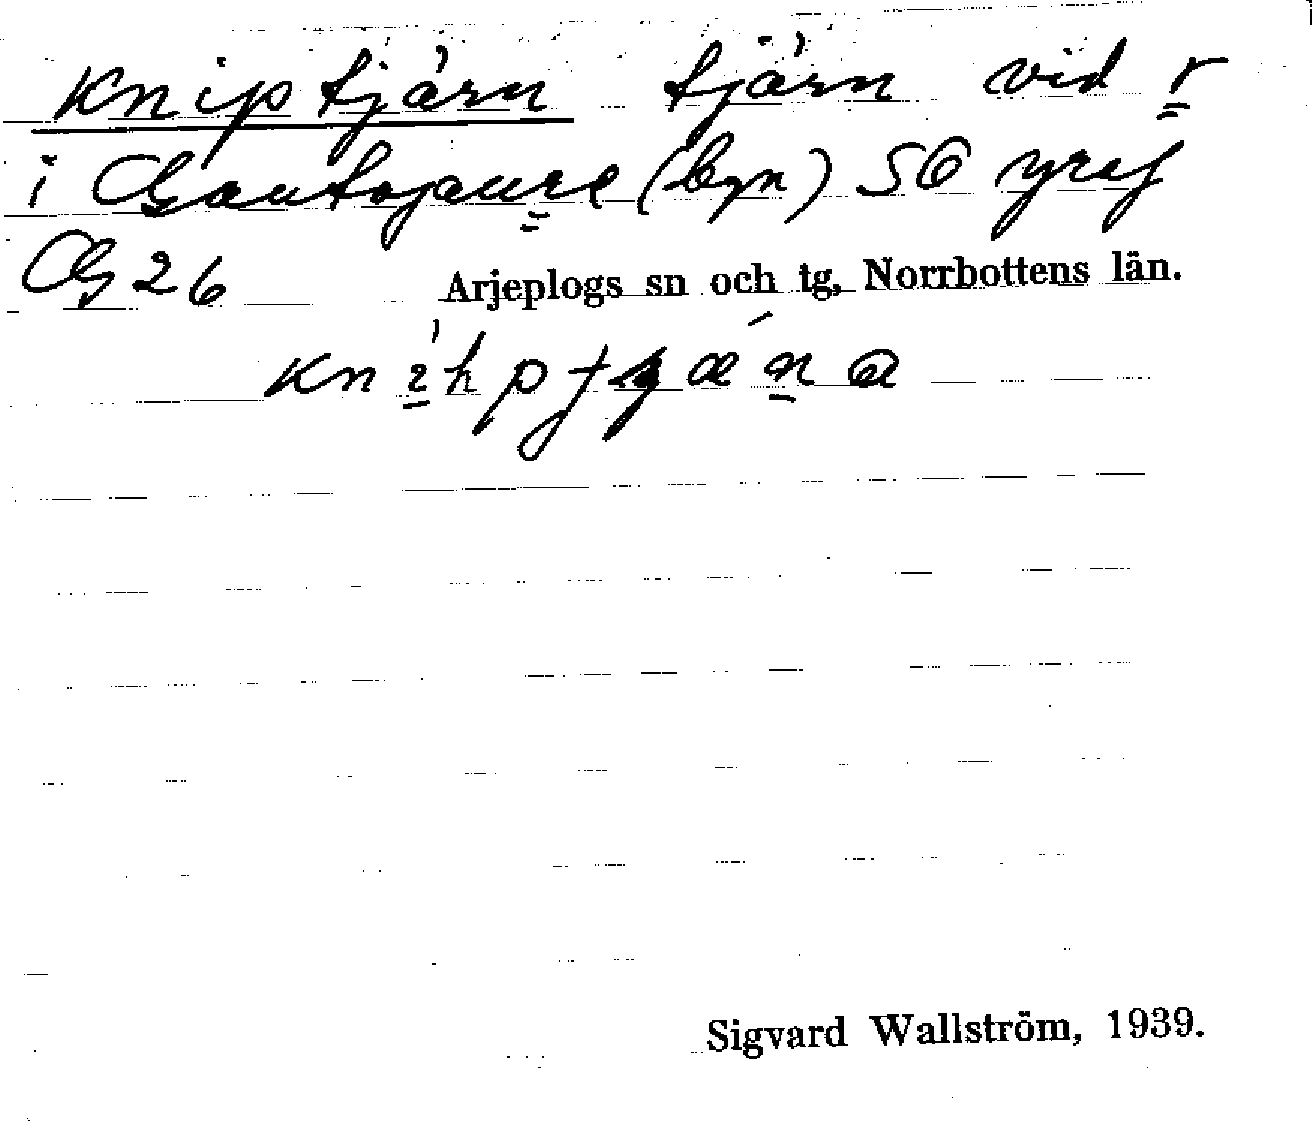 Kniptjärn tjärn vid r
i Gautojaure (byn) 56 yraf
G 26 Arjeplogs sn och tg, Norrbottens län.
Sigvard Wallström, 1939.